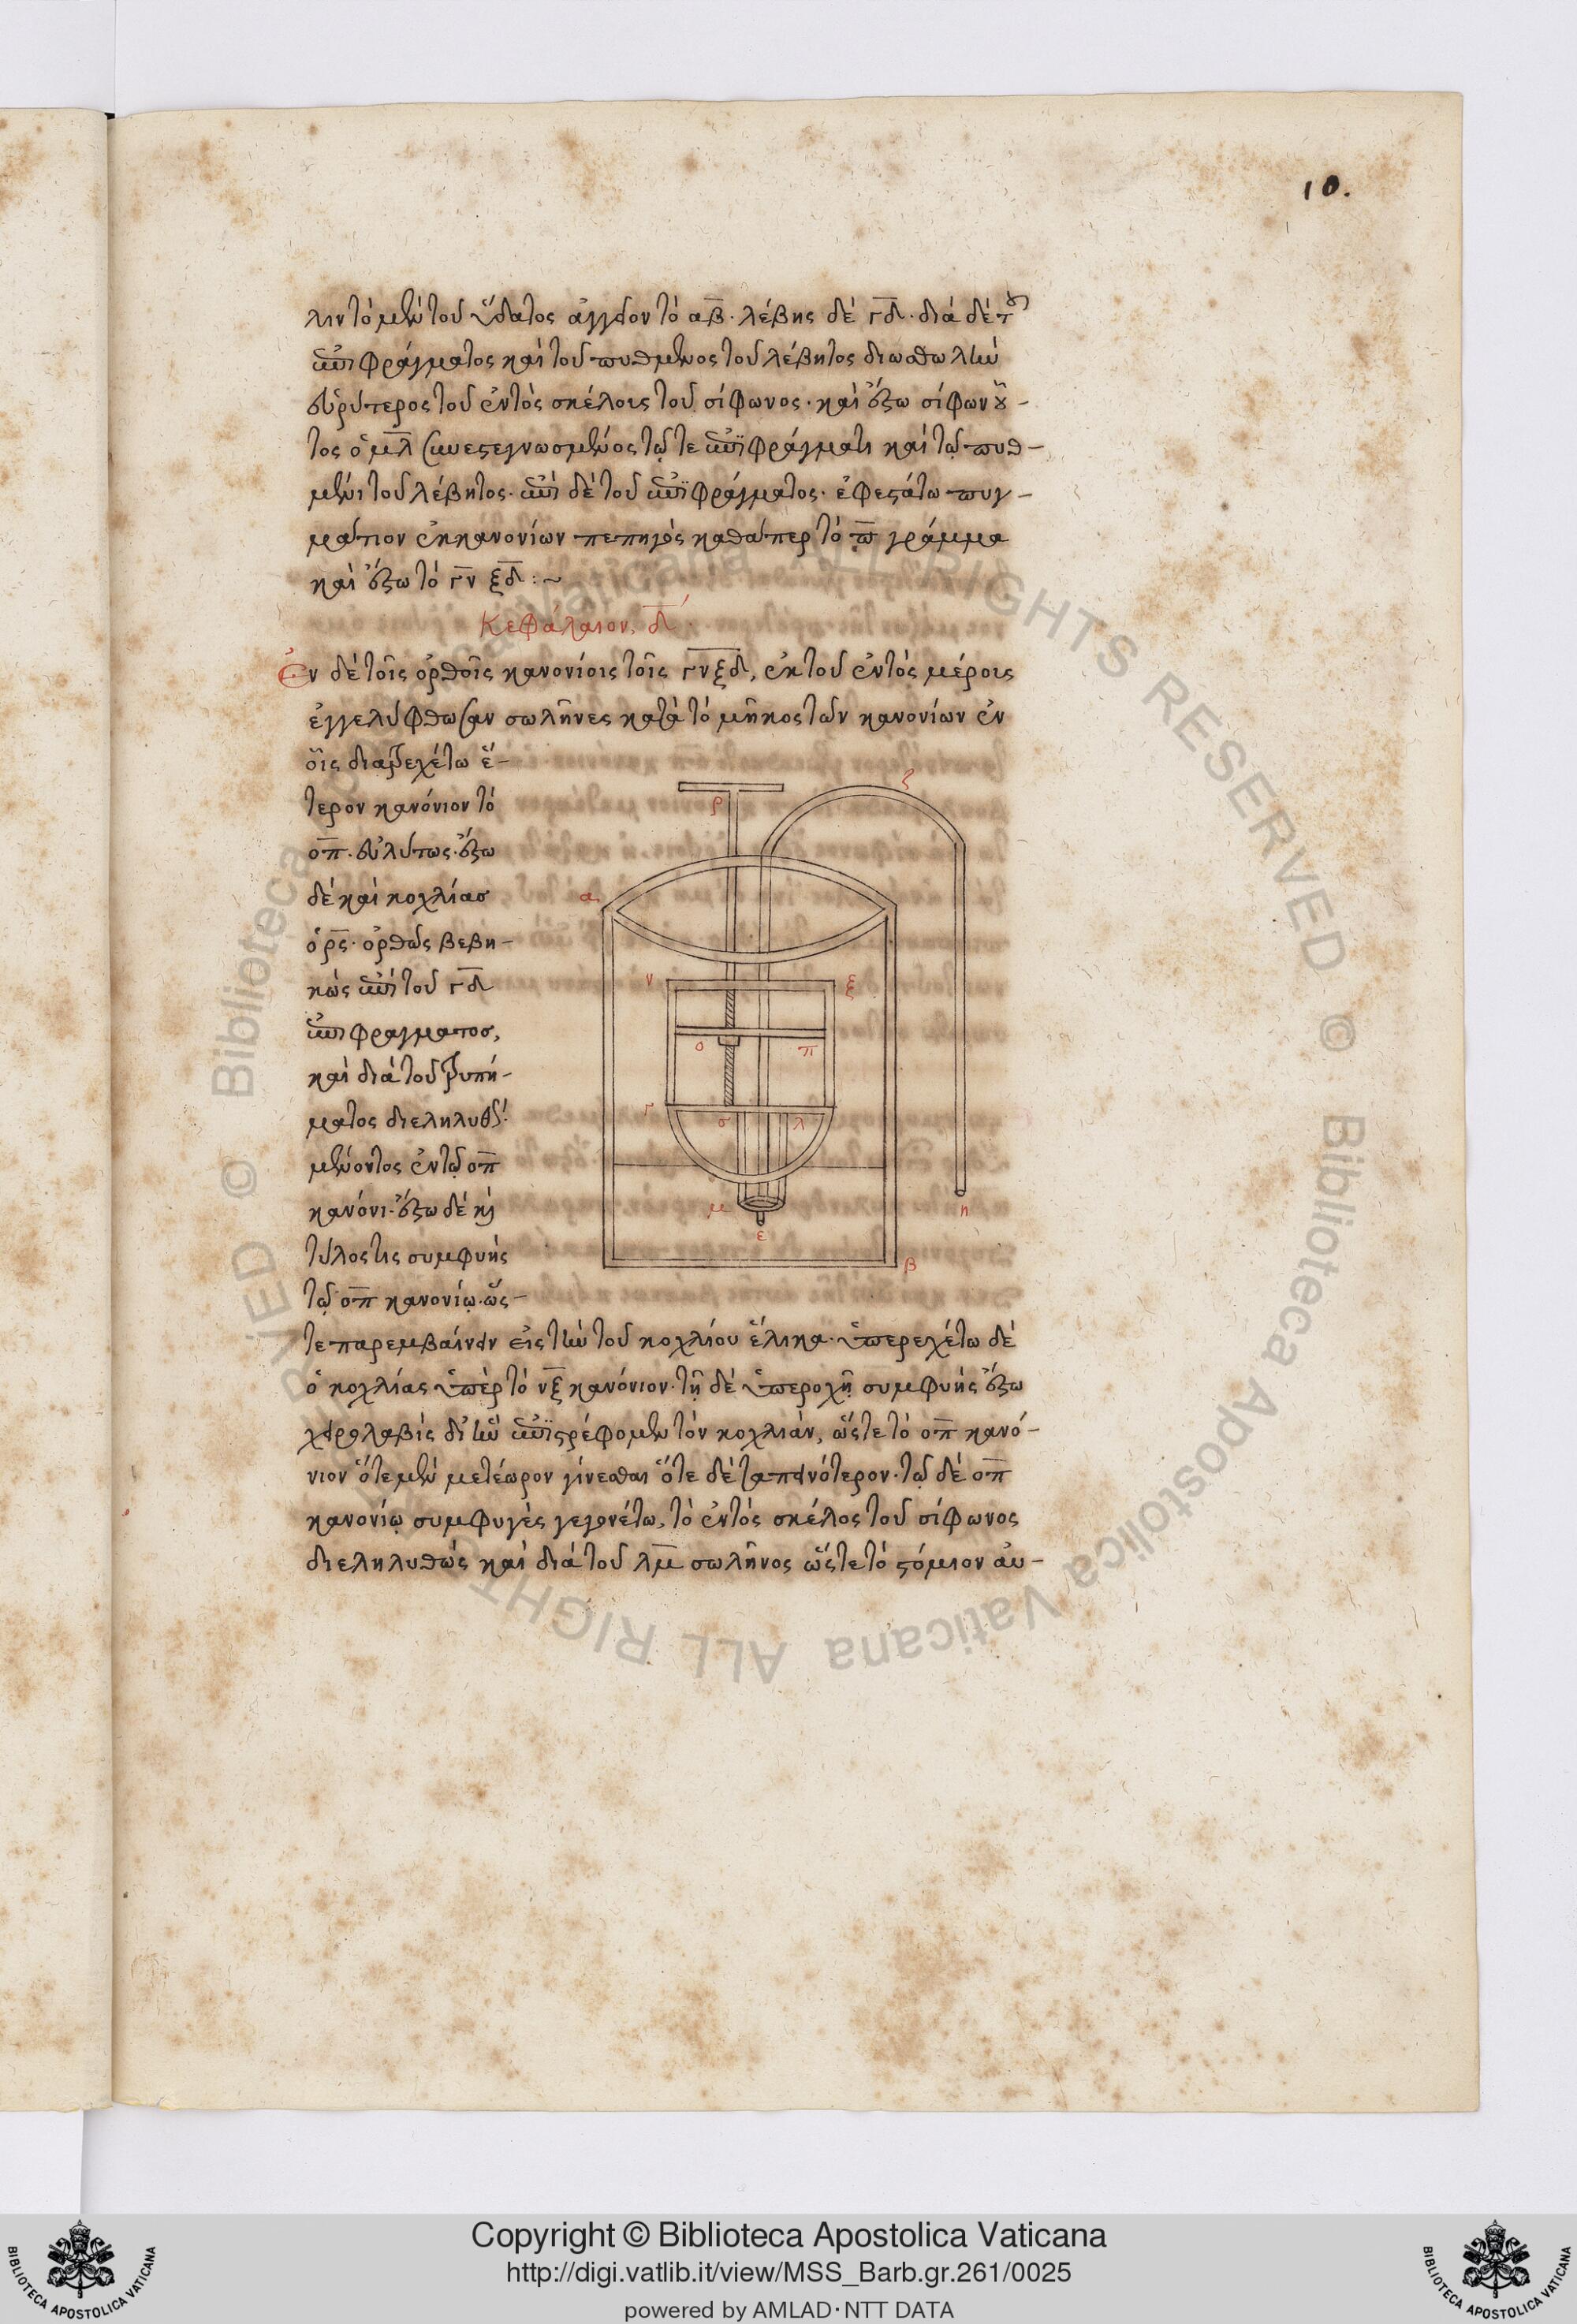 10.
λιν τὸ μὲν τοῦ ὕδατος ἀγγεῖον τὸ α̅β̅· λέβης δὲ γ̅δ̅· διὰ δὲ τοῦ
ἐπιφράγματος καὶ τοῦ πυθμένος τοῦ λέβητος διώσθω λὴν
εὐρύτερος τοῦ ἐντὸς σκέλους τοῦ σίφωνος· καὶ ἔξω σίφων οὗ-
τος ὁ μ̅λ̅ συνεστεγνωσμένος τῷ τε ἐπιφράγματι καὶ τῷ πυθ-
μένι τοῦ λέβητος· ἐπὶ δὲ τοῦ ἐπιφράγματος· ἐφεστάτω πηγ-
μάτιον ἐκ κανονίων πεπηγὸς καθάπερ τὸ π̅ γράμμα
καὶ ἔξω τὸ γ̅ν̅ ξ̅δ̅:~
Κεφάλαιον, δ̅
Ἐν δὲ τοῖς ὀρθοῖς κανονίοις τοῖς γ̅ν̅ξ̅δ̅, ἐκ τοῦ ἐντὸς μέρους
ἐγγελύφθωσαν σωλῆνες κατὰ τὸ μῆκος τῶν κανονίων ἐν
οἷς διατρεχέτω ἕ-
τερον κανόνιον τὸ
ο̅π̅· εὐλύτως· ἔξω
δὲ καὶ κοχλίασ
ὁ ρ̅ς̅· ὀρθῶς βεβη-
κὼς ἐπὶ τοῦ γ̅δ̅
ἐπιφράγματοσ,
καὶ διὰ τοῦ τρυπή-
ματος διεληλυθ
μένοντος ἐν τῷ ο̅π̅
κανόνι· ἔξω δὲ καὶ
τύλος τις συμφυὴς
τῷ ο̅π̅ κανονίῳ· ὥς-
τε παρεμβαίνειν εἰς τὴν τοῦ κοχλίου ἕλικα· ὑπερεχέτω δὲ
ὁ κοχλίας ὑπὲρ τὸ ν̅ξ̅ κανόνιον· τῇ δὲ ὑπεροχῇ συμφυὴς ἔξω
χειρολαβὶς δι' ἣν ἐπιστρέφομεν τὸν κοχλίαν, ὥστε τὸ ο̅π̅ κανό-
νιον ὅτε μὲν μετέωρον γίνεσθαι ὅτε δὲ ταπεινότερον· τῷ δὲ ο̅π̅
κανονίῳ συμφυγὲς γεγονέτω, τὸ ἐντὸς σκέλος τοῦ σίφωνος
διεληλυθὼς καὶ διὰ τοῦ λ̅μ̅ σωλῆνος ὥστε τὸ στόμιον αὐ-
ζ
ρ
α
ν
ξ
ο
π
γ
σ
λ
μ
ε
η
β
Copyright © Biblioteca Apostolica Vaticana
http://digi.vatlib.it/view/MSS_Barb.gr.261/0025
powered by AMLAD·NTT DATA
BIBLIOTECA APOSTOLICA VATICANA
BIBLIOTECA APOSTOLICA VATICANA
© Biblioteca Apostolica Vaticana ALL RIGHTS RESERVED © Biblioteca Apostolica Vaticana ALL RIGHTS RESERVED